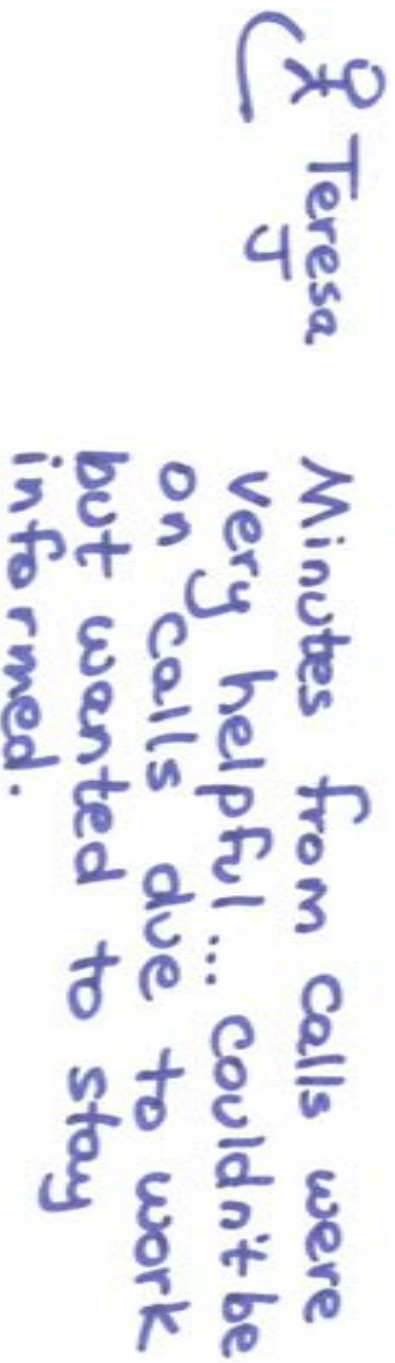 Teresa
J
Minutes from calls were
very helpful... couldn't be
on calls due to work
but wanted to stay
informed.